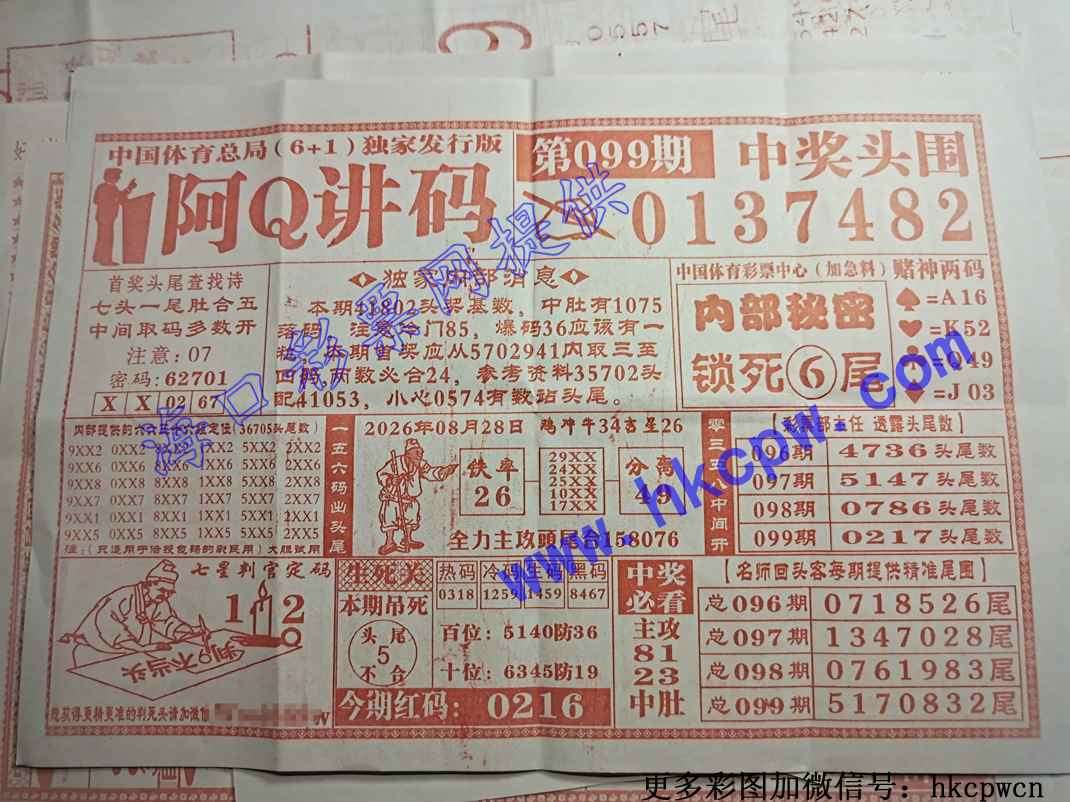 中国体育总局(6+1)独家发行版
阿Q讲码
第099期
中奖头围
0137482
首奖头尾查找诗
七头一尾肚合五
中间取码多数开
注意:07
密码:62701
X X 02 67
独家内部消息
本期41802头奖基数,中肚有1075
落码,注意合门85,爆码36应该有一
粒,本期首奖应从5702941内取三至
四码,两数必合24,参考资料35702头
配41053,小心0574有数站头尾。
中国体育彩票中心(加急料)赌神两码
内部秘密
锁死⑥尾
♠=A16
♥=K52
♣=Q49
♦=J 03
9XX2 0XX2
9XX7 0XX7 8XX7 1XX7 5XX7 2XX7
9XX8 0XX8 8XX8 1XX8 5XX8 2XX8
9XX1 0XX1 8XX1 1XX1 5XX1 2XX1
9XX5 0XX5 8XX5 1XX5 5XX5 2XX5
一五六码出头尾
2026年08月28日 鸡冲牛34吉星26
铁率
26
29XX
24XX
25XX
10XX
17XX
分离
49
全力主攻头尾合158076
中间开
透露头尾数
096期 4736头尾数
097期 5147头尾数
098期 0786头尾数
099期 0217头尾数
七星判官定码
1 2
8
判9不当头
生死关
本期吊死
头尾
5
不合
热码 冷码 生码 黑码
0318 1259 1459 8467
百位:5140防36
十位:6345防19
今期红码:0216
中奖
必看
主攻
81
23
中肚
【名师回头客每期提供精准尾围】
总096期 0718526尾
总097期 1347028尾
总098期 0761983尾
总099期 5170832尾
想获得更精更准的判死头请加微信
海口彩票网提供
www.hkcpw.com
更多彩图加微信号:hkcpwcn